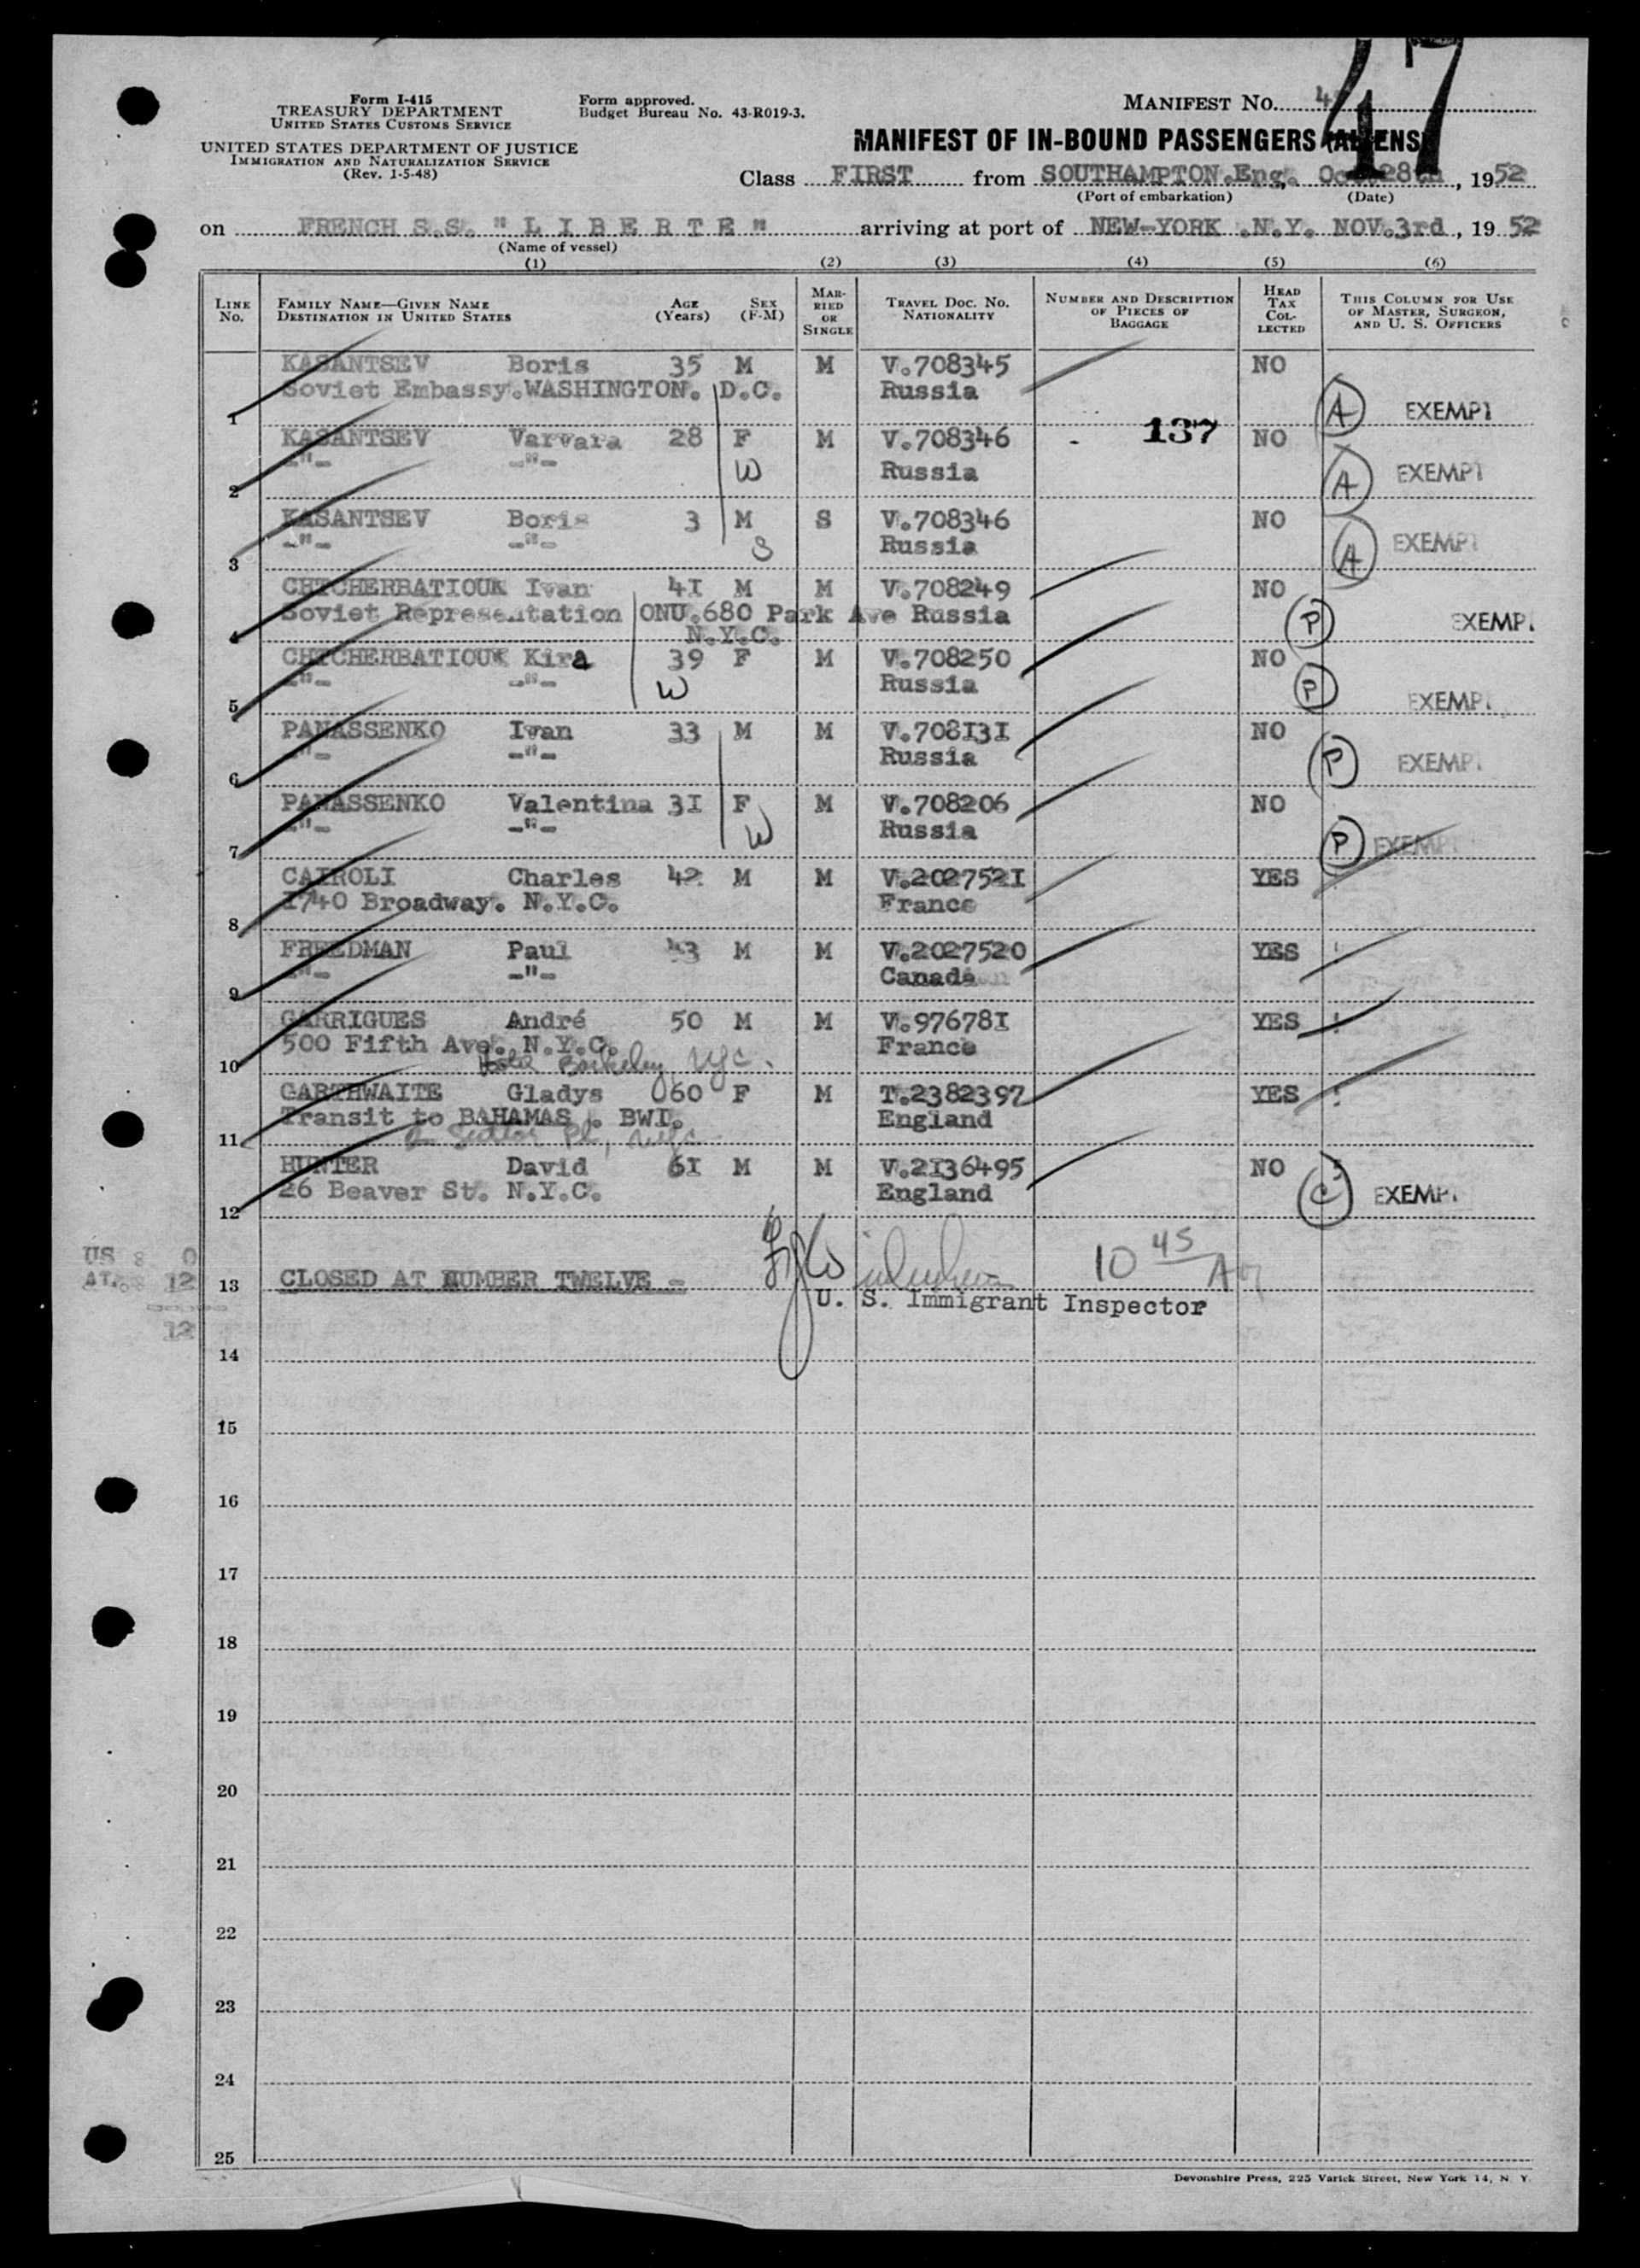 Form I-415
TREASURY DEPARTMENT
UNITED STATES CUSTOMS SERVICE
UNITED STATES DEPARTMENT OF JUSTICE
IMMIGRATION AND NATURALIZATION SERVICE
(Rev. 1-5-48)
Form approved.
Budget Bureau No. 43-R019-3.
MANIFEST No. 47
MANIFEST OF IN-BOUND PASSENGERS (ALIENS)
Class FIRST from SOUTHAMPTON.Eng. Oct.28th, 1952
(Port of embarkation) (Date)
on FRENCH S.S. " L I B E R T E " arriving at port of NEW-YORK .N.Y. NOV.3rd, 19 52
(Name of vessel)
(1) (2) (3) (4) (5) (6)
LINE No. FAMILY NAME—GIVEN NAME DESTINATION IN UNITED STATES AGE (Years) SEX (F-M) MARRIED OR SINGLE TRAVEL DOC. NO. NATIONALITY NUMBER AND DESCRIPTION OF PIECES OF BAGGAGE HEAD TAX COLLECTED THIS COLUMN FOR USE OF MASTER, SURGEON, AND U. S. OFFICERS
KASANTSEV Boris 35 M M V.708345 NO
Soviet Embassy.WASHINGTON. D.C. Russia
1 A EXEMPT
KASANTSEV Varvara 28 F M V.708346 - 137 NO
-"- -"- W Russia A EXEMPT
2
KASANTSEV Boris 3 M S V.708346 NO
-"- -"- S Russia A EXEMPT
3
CHTCHERBATIOUK Ivan 41 M M V.708249 NO
Soviet Representation ONU.680 Park Ave Russia P EXEMPT
4 N.Y.C.
CHTCHERBATIOUK Kira 39 F M V.708250 NO
-"- -"- W Russia P EXEMPT
5
PANASSENKO Ivan 33 M M V.708131 NO
-"- -"- Russia P EXEMPT
6
PANASSENKO Valentina 31 F M V.708206 NO
-"- -"- W Russia P EXEMPT
7
CAIROLI Charles 42 M M V.2027521 YES
1740 Broadway. N.Y.C. France
8
FREEDMAN Paul 43 M M V.2027520 YES
-"- -"- Canada
9
GARRIGUES André 50 M M V.976781 YES
500 Fifth Ave. N.Y.C. France
10 Hotel Berkeley, NYC.
GARTHWAITE Gladys 60 F M T.2382397 YES
Transit to BAHAMAS . BWI. England
11 NYC
HUNTER David 61 M M V.2136495 NO
26 Beaver St. N.Y.C. England C EXEMPT
12
US 8 0
AT. 12
12
13 CLOSED AT NUMBER TWELVE - 10 45 AM
U. S. Immigrant Inspector
14
15
16
17
18
19
20
21
22
23
24
25
Devonshire Press, 225 Varick Street, New York 14, N. Y.